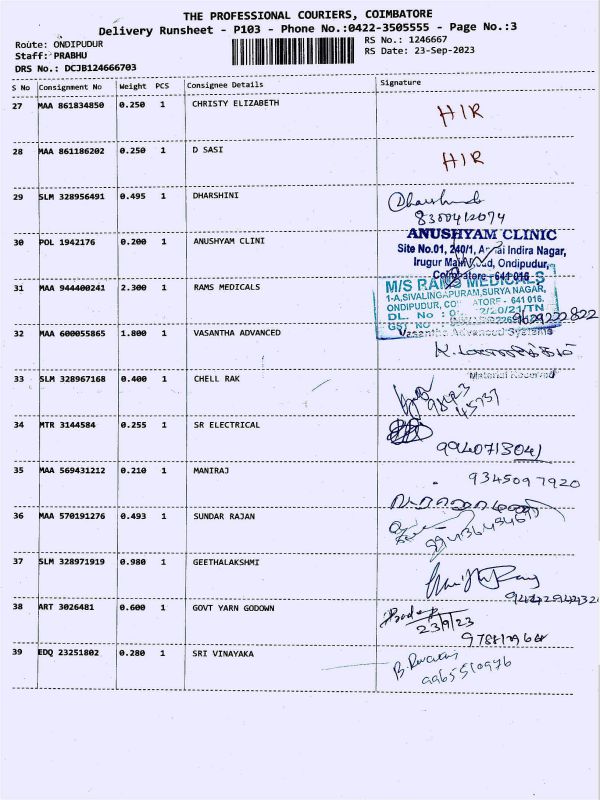 THE PROFESSIONAL COURIERS, COIMBATORE
Delivery Runsheet - P103 - Phone No.:0422-3505555 - Page No.:3
Route: ONDIPUDUR
RS No.: 1246667
Staff: PRABHU
RS Date: 23-Sep-2023
DRS No.: DCJB124666703
S No Consignment No Weight PCS Consignee Details Signature
27 MAA 861834850 0.250 1 CHRISTY ELIZABETH HIR
28 MAA 861186202 0.250 1 D SASI HIR
29 SLM 328956491 0.495 1 DHARSHINI Dharshini
8300412074
30 POL 1942176 0.200 1 ANUSHYAM CLINI ANUSHYAM CLINIC
Site No.01, 240/1, Indira Nagar,
Irugur Main Road, Ondipudur,
Coimbatore - 641 016.
31 MAA 944400241 2.300 1 RAMS MEDICALS M/S RAMS MEDICALS
1-A,SIVALINGAPURAM,SURYA NAGAR,
ONDIPUDUR, COIMBATORE - 641 016.
DL. No : 2/20/21/TN
GST NO 9629222822
32 MAA 600055865 1.800 1 VASANTHA ADVANCED Vasantha Advanced Systems
Material Received
33 SLM 328967168 0.400 1 CHELL RAK
98423
45737
34 MTR 3144584 0.255 1 SR ELECTRICAL
9940713041
35 MAA 569431212 0.210 1 MANIRAJ 9345097920
36 MAA 570191276 0.493 1 SUNDAR RAJAN
37 SLM 328971919 0.980 1 GEETHALAKSHMI
38 ART 3026481 0.600 1 GOVT YARN GODOWN Pradeep
23/9/23
39 EDQ 23251802 0.280 1 SRI VINAYAKA
9965510976